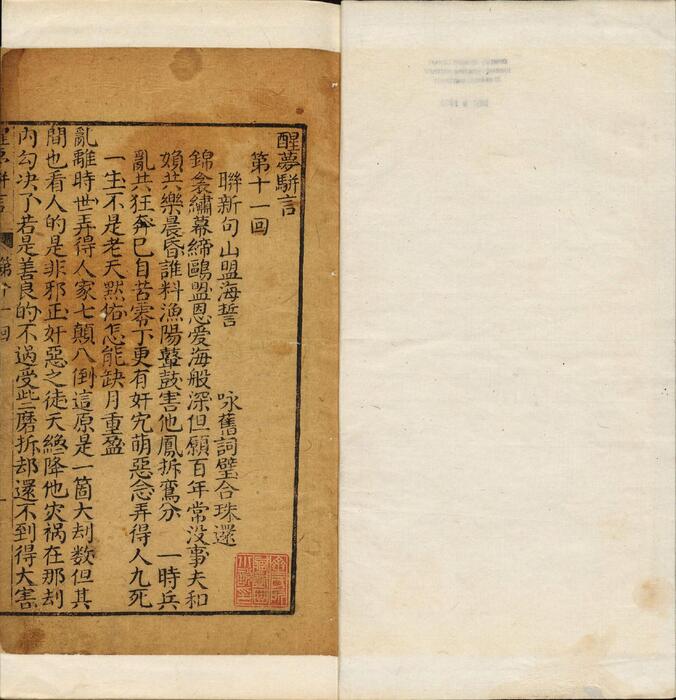 醒夢駢言
第十一回
聯新句山盟海誓　詠舊詞璧合珠還
錦衾繡幕締鷗盟恩爱海般深但願百年常没事夫和
婏共樂晨昏誰料漁陽鼙鼓害他鳳拆鸞分　一時兵
亂共狂奔已自苦零丁更有奸宄萌惡念弄得人九死
一生不是老天黙佑怎能缺月重盈
亂離時世弄得人家七顛八倒這原是一箇大刦數但其
間也看人的是非邪正奸惡之徒天終降他灾禍在那刦
内勾决了若是善良的不過受些磨折却還不到得大害
醒夢駢言
第十一回